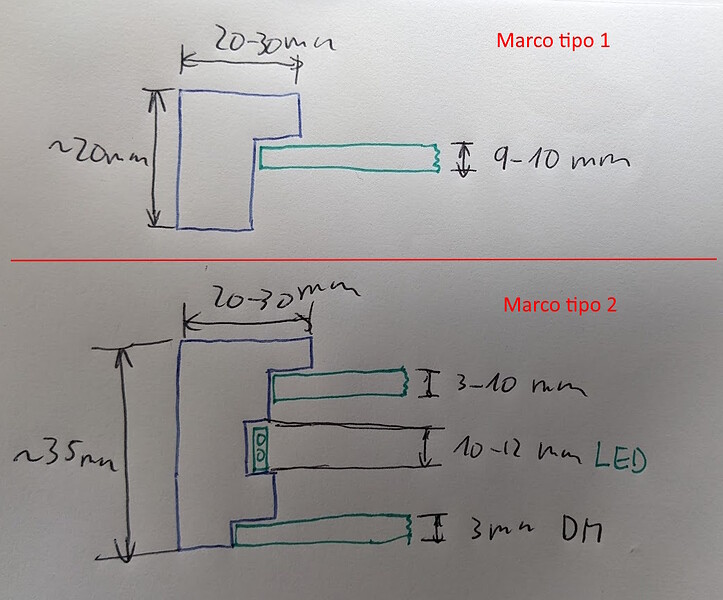 20-30mm
Marco tipo 1
~20mm
9-10 mm
20-30mm
Marco tipo 2
3-10 mm
~35mm
10-12 mm LED
3mm DM